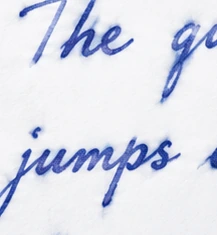 The
jumps